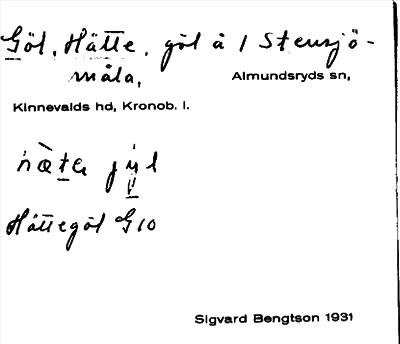 Göl, Hätte, göl å 1 Stensjö-
måla, Almundsryds sn,
Kinnevalds hd, Kronob. l.
hὰta jyl
Hättegöl G10
Sigvard Bengtson 1931